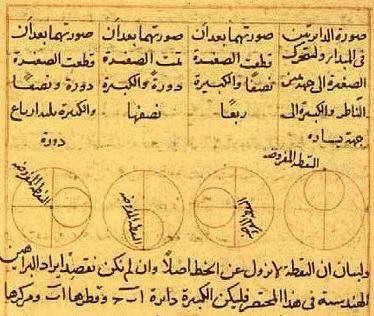 صورة الدايرتين
فى المدار ولتتحرك
الصغرة الى جهة يمين
الناظر والكبيرة الى
جهة يساره
صورتهما بعد أن
قطعت الصغيرة
نصفًا والكبيرة
ربعًا
صورتهما بعد أن
تمت الصغيرة
دورةً والكبيرة
نصفها
صورتهما بعد أن
قطعت الصغيرة
دورة ونصفًا
والكبيرة ثلثه ارباع
دورة
النقطة المفروضة
النقطة المفروضة
النقطة المفروضة
ولبيان ان النقطة لا تزول عن الخط اصلًا وان لم نكن نقصد ايراد البراهين
الهندسية فى هذا المختصر فليكن الكبيرة دائرة اب ح وقطرها اب ومركزها